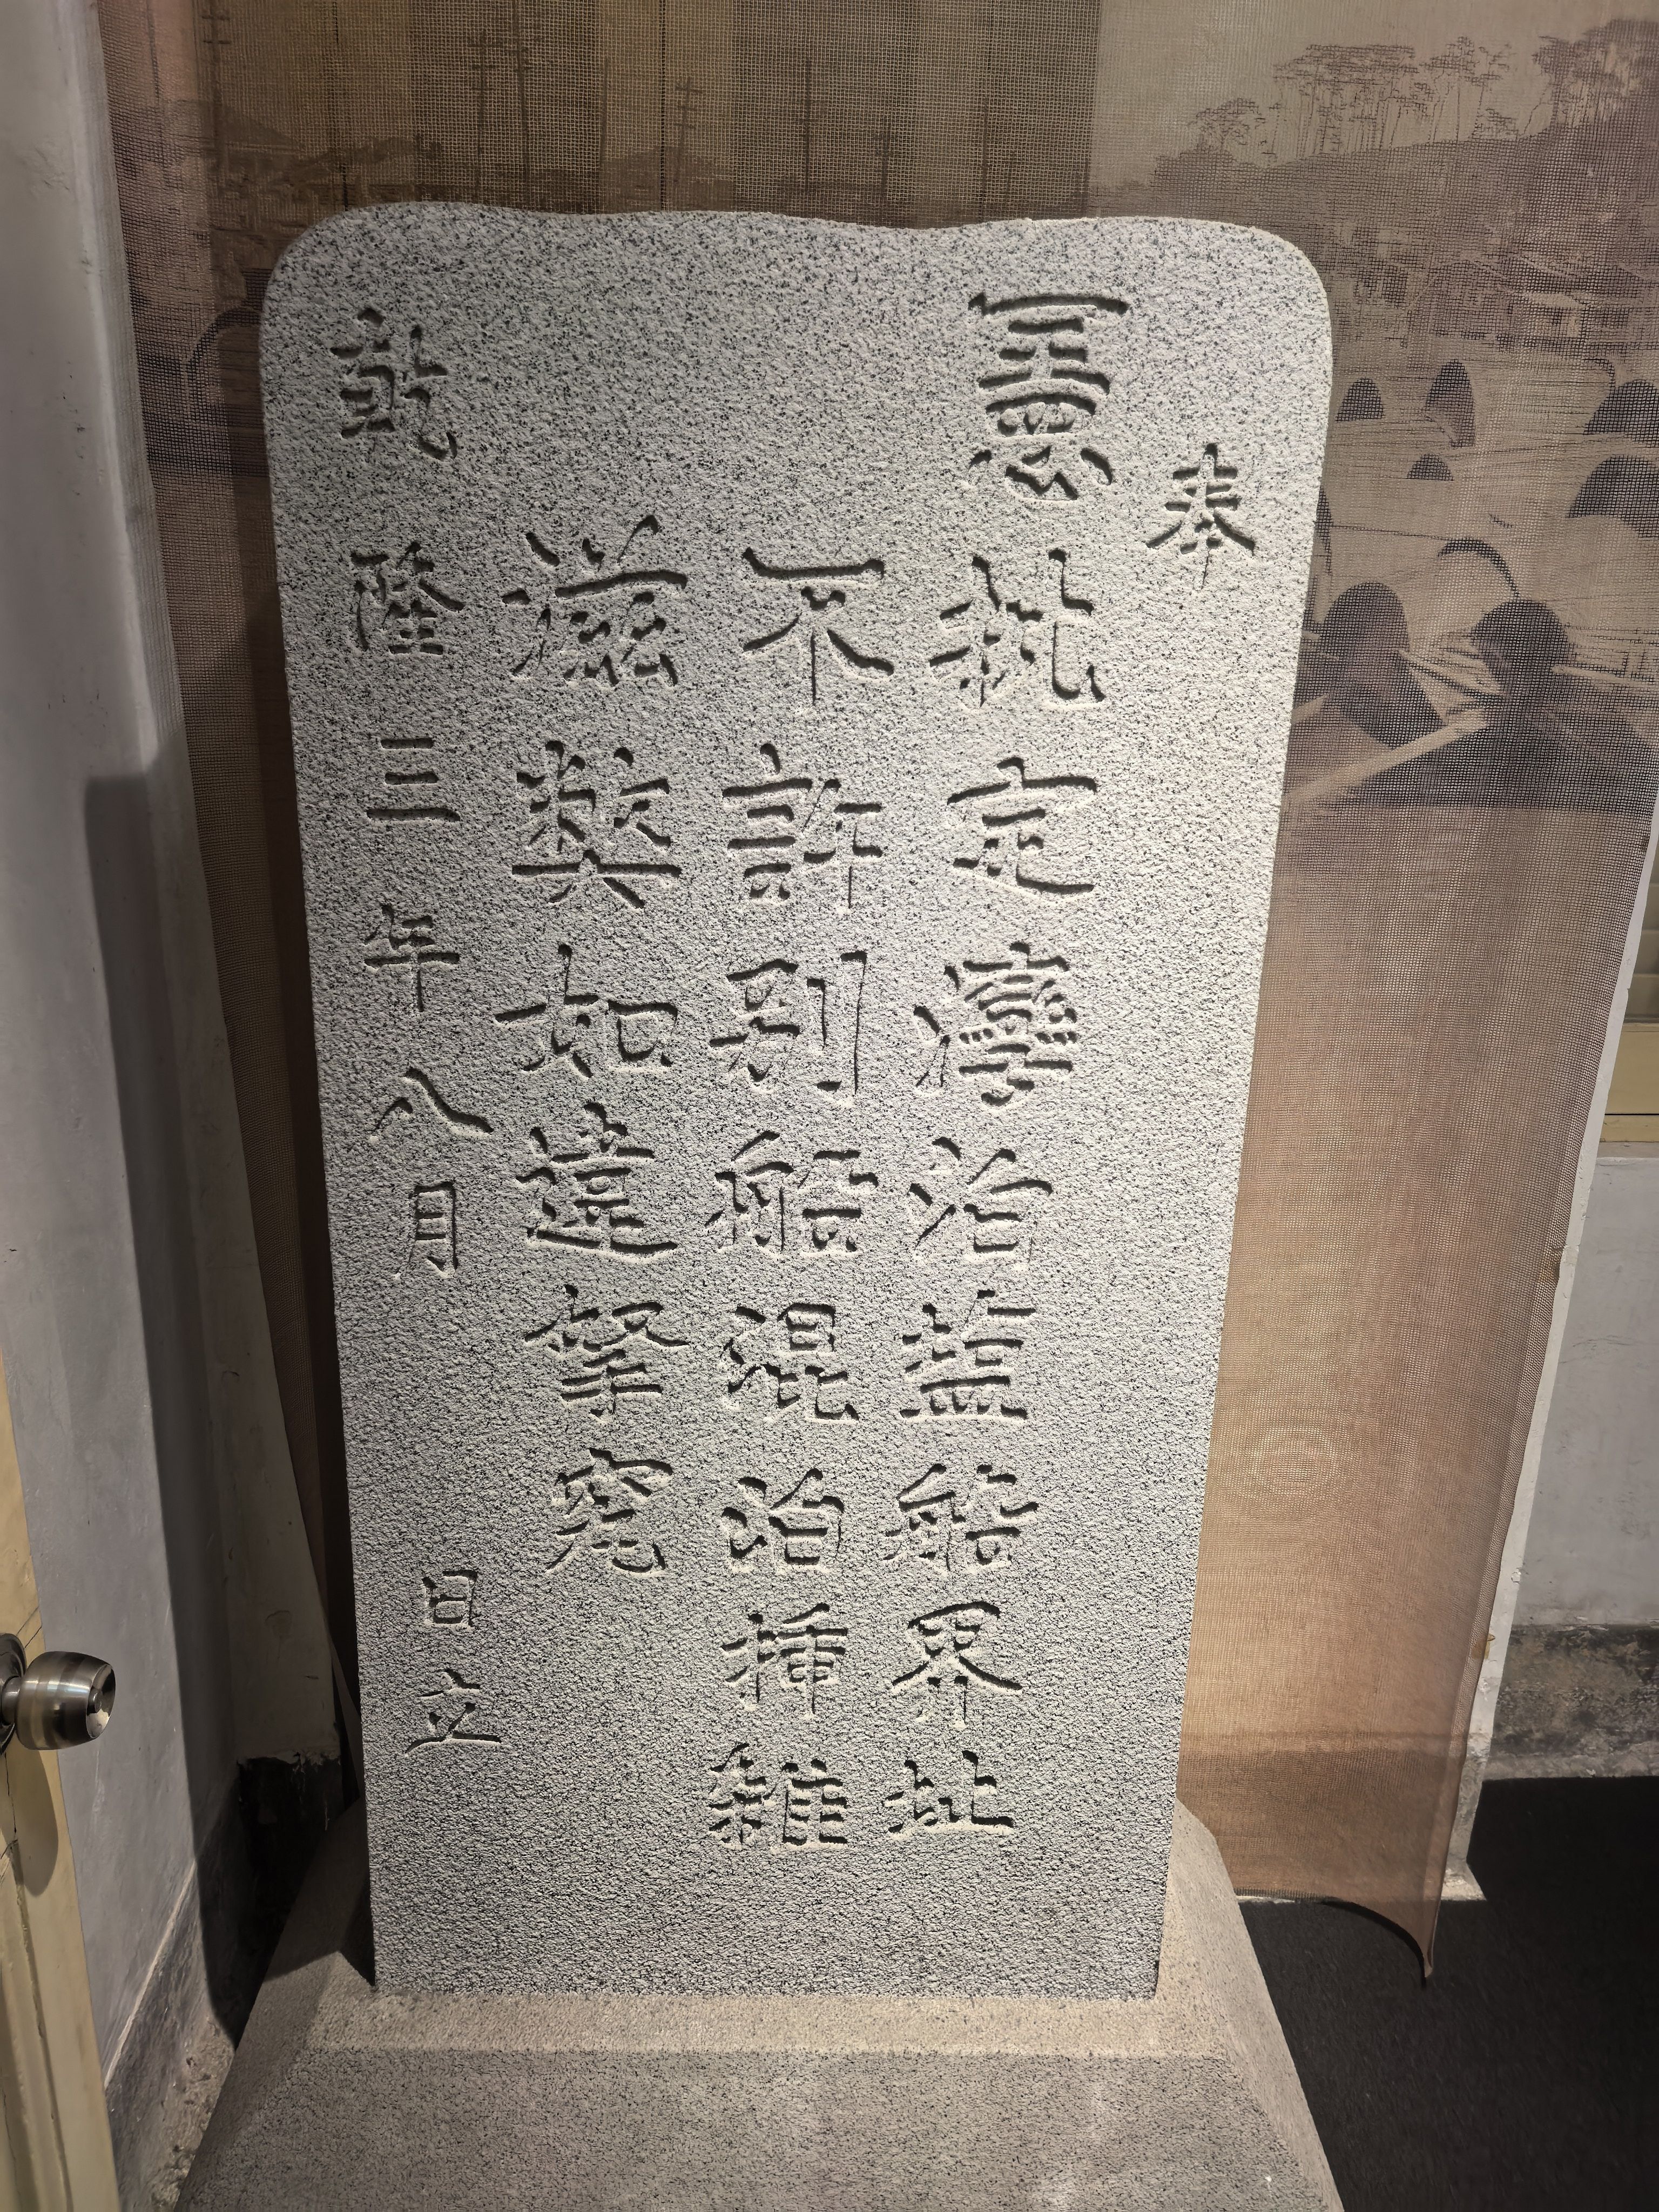 奉
憲批定灣泊盐船界址
不許别船混泊挿雜
滋弊如違拏究
乾隆三年八月 日立